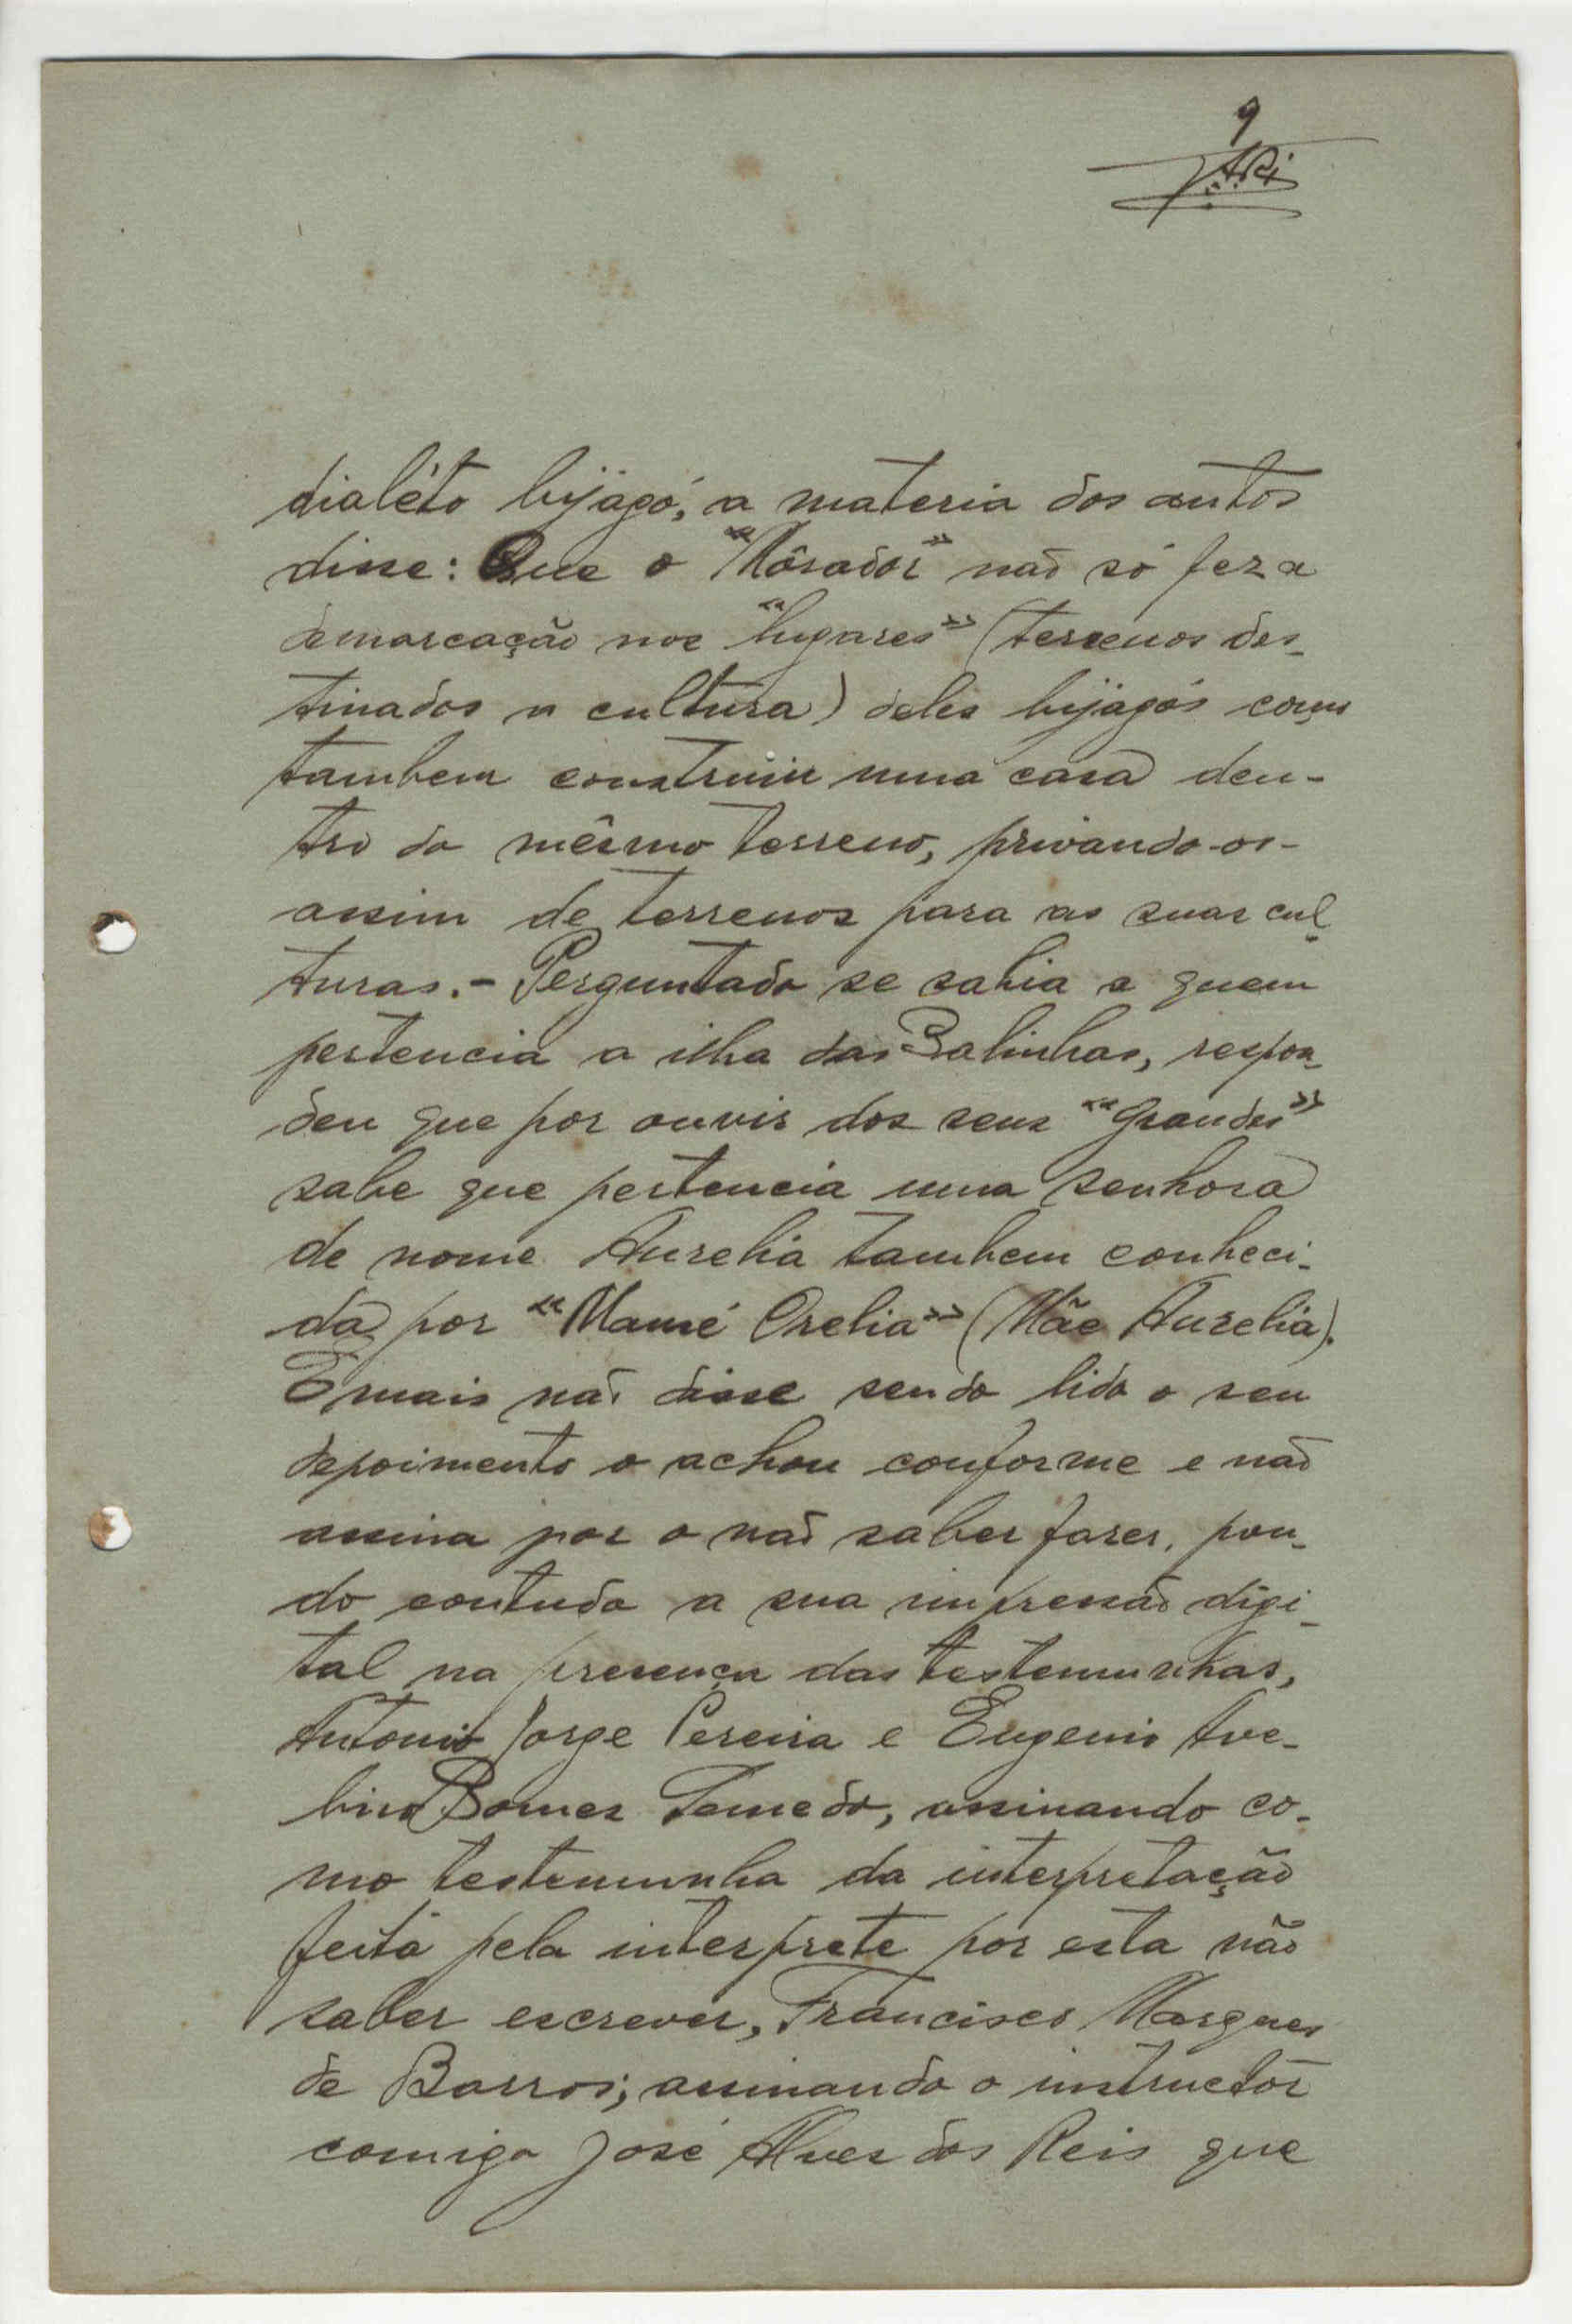 9
dialéto bijagó, a materia dos autos
disse: Que o "Môrador" não só fez a
demarcação nos "lugares" (terrenos des-
tinados a cultura) deles bijagós como
tambem construiu uma casa den-
tro do mêsmo terreno, privando-os-
assim de terrenos para as suas cul
turas.- Perguntado se sabia a quem
pertencia a ilha das Galinhas, respon-
deu que por ouvir dos seus "Grandes"
sabe que pertencia uma senhora
de nome Aurelia tambem conheci-
da por "Mamé Orelia" (Mãe Aurelia).
E mais não disse sendo lido o seu
depoimento o achou conforme e não
assina por o não saber fazer, pon-
do contudo a sua impressão digi-
tal na presença das testemunhas,
Antonio Jorge Pereira e Eugenio Ave-
lino Gomes, assinando co-
mo testemunha da interpretação
feita pela interprete por esta não
saber escrever, Francisco Marques
de Barros; assinando o instructor
comigo José Alves dos Reis que